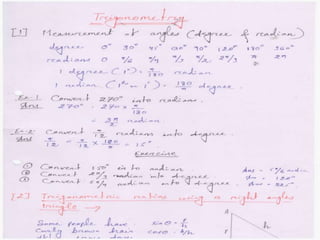 Trigonometry
[1] Measurement of angles (degree & radian)
degree 0° 30° 45° 60° 90° 120° 180° 360°
readians 0 π/6 π/4 π/3 π/2 2π/3 π 2π
1 degree (1°) = π/180 radian
1 radian (1ᶜ or 1ʳ) = 180/π degree.
Ex-1 Convert 270° into radians.
Ans 270° = 270 × π/180
= 3π/2 radian
Ex-2 Convert π/12 radians into degree.
Ans π/12 = π/12 × 180/π = 15°
Exercise
① Convert 150° into radian Ans = 5π/6 radian
② Convert 2π/3 radian into degree Ans = 120°
③ Convert radian into degree. Ans = 225°.
[2] Trigonometric ratios using a right angles
triangle →
Some people have. sin θ = P/h A
Curly brown hair cos θ = b/h h